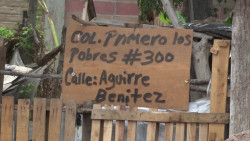 COL. PRIMERO los
Pobres #300
Calle: Aguirre
Benitez